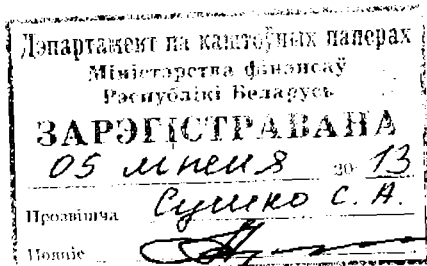 Дэпартамент па каштоўных паперах
Міністэрства фінансаў
Рэспублікі Беларусь
ЗАРЭГІСТРАВАНА
05 июня 2013
Прозвішча Сушко С. А.
Подпіс